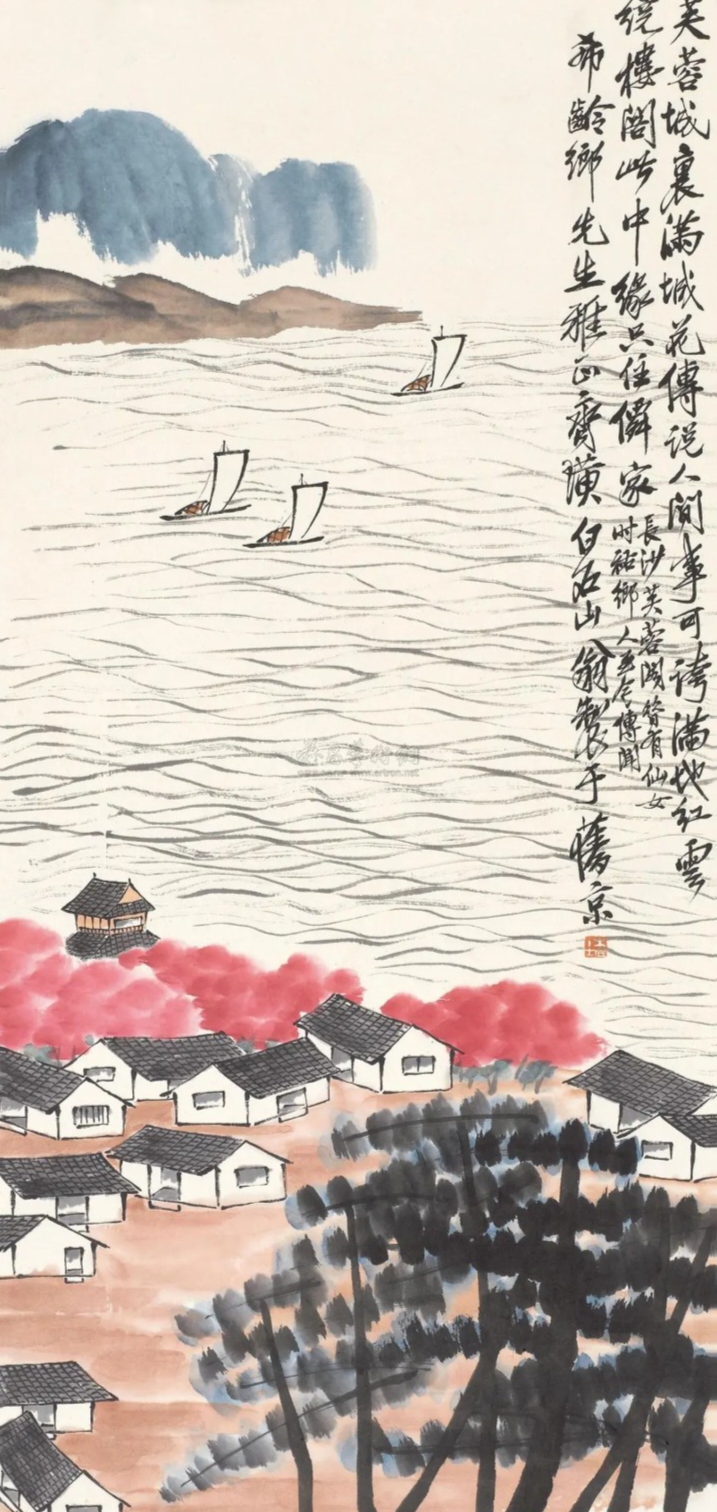 芙蓉城裏滿城花傳说人間事可誇滿地红雲
繞樓閣此中緣只住儔家
長沙芙蓉閣曾有仙女
时 鄉人 今傳聞
希齡鄉先生雅正齊璜白石山翁製于舊京